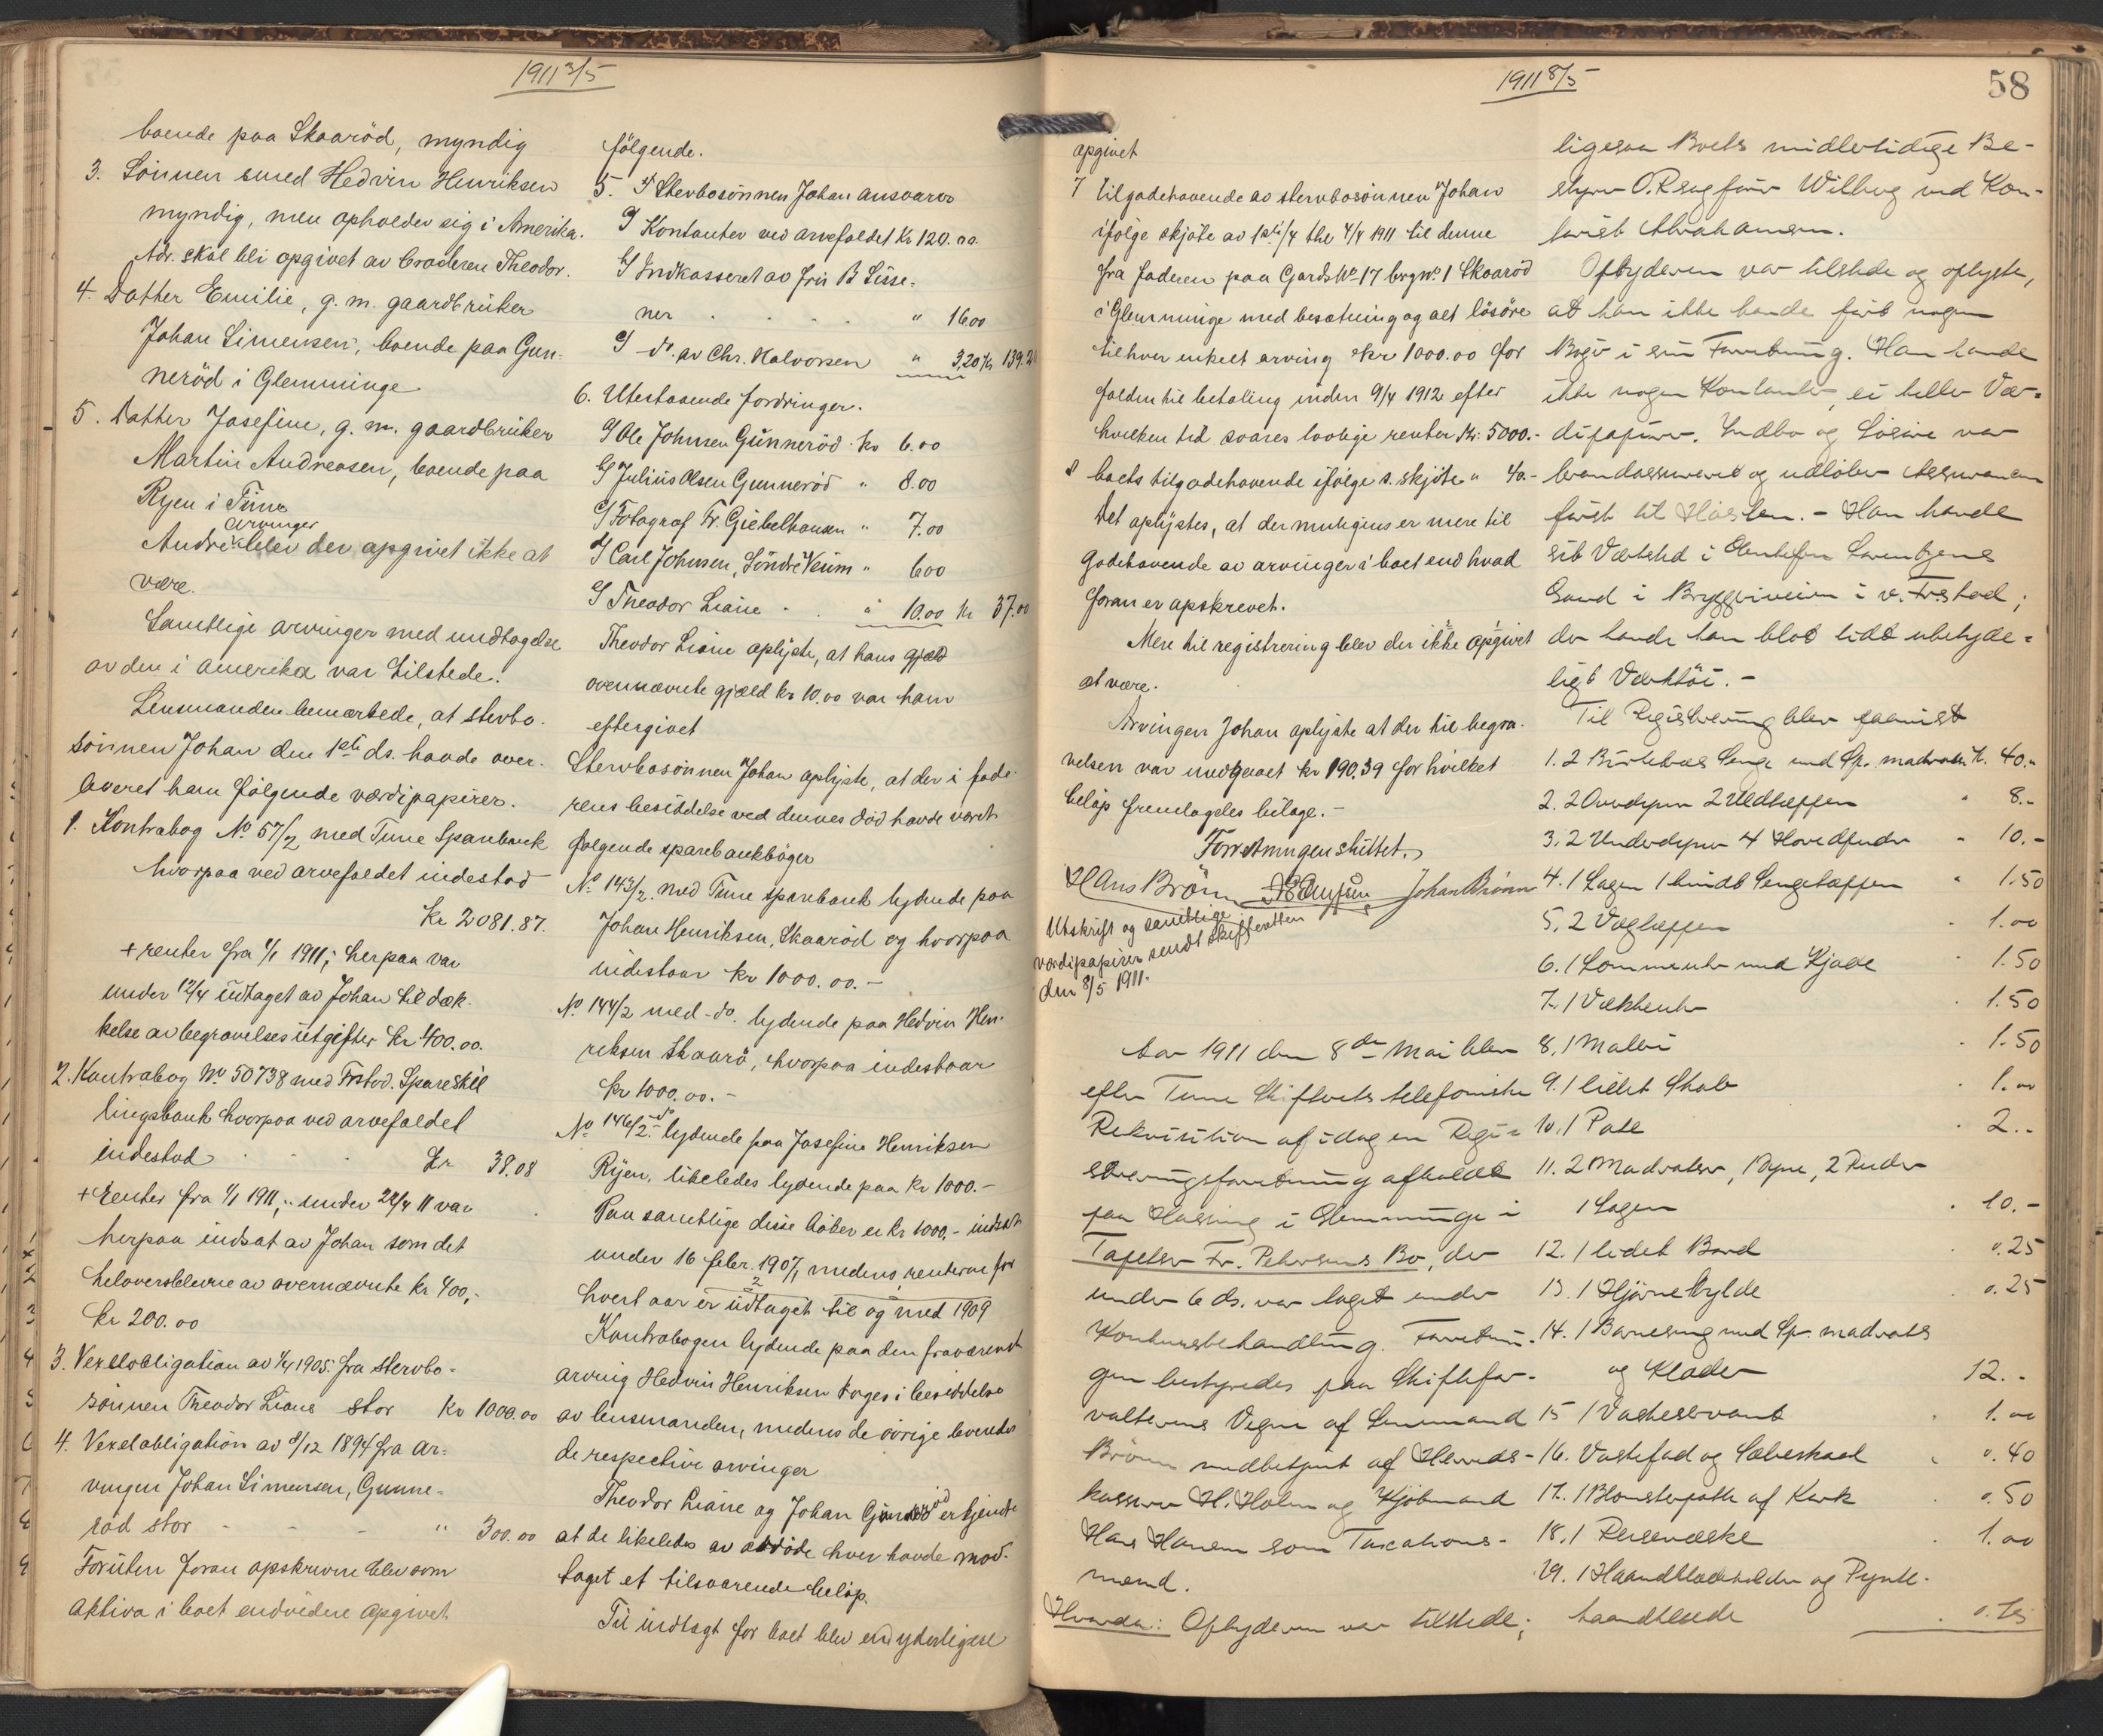 1911 3/5
boende paa Skaaröd, myndig
3. Sönnen smed Hedvin Henriksen
myndig, men opholder sig i Amerika.
Adr. skal bli opgivet av broderen Theodor.
4. Datter Emilie, g. m. gaardbrüker
Johan Simensen, boende paa Gun-
neröd i Glemminge
5. Datter Josefine, g. m. gaardbrüker
Martin Andreasen, boende paa
Ryen i Tüne
arvinger
Andre blev der opgivet ikke at
være.
Samtlige arvinger med undtagelse
av den i Amerika var tilstede.
Lensmanden bemærkede, at stervbo-
sönnen Johan den 1ste ds. havde over-
leveret ham fölgende værdipapirer.
1. Kontrabog No 57/2 med Tune Sparebank
hvorpaa ved arvefaldet indestod
Kr 2081.87.
+ renter fra 1/1 1911; herpaa var
under 12/4 üdtaget av Johan til dæk-
kelse av begravelsesütgifter kr 400.00.
2. Kontrabog No 50738 med Frstad. Spareskil
lingsbank hvorpaa ved arvefaldet
indestod kr 38.08
+ renter fra 1/1 1911; under 22/4 11 var
herpaa indsat av Johan som det
heloversblevne av ovennævnte kr 400,-
kr 200.00
3. Vexelobligation av 1/4 1905 fra stervbo-
sönnen Theodor Liane stor kr 1000.00
4. Vexelobligation av 8/12 1894 fra ar-
vingen Johan Simensen, Gunne-
röd stor " 300.00
Forüten foran opskrevne blev som
aktiva i boet endvidere opgivet
fölgende.
5. I Stervbosönnen Johan ansvarer
I Kontanter ved arvefaldet kr 120.00.
I Indkasseret av Frü B Lisse-
ner " 16.00
I do. av Chr. Halvorsen " 3,20 kr 139.20
6. Utestaaende fordringer.
I Ole Johnsen Günneröd kr 6.00
I Julius Olsen Gunneröd " 8.00
I Fotograf Fr. Giebelhausen " 7.00
I Carl Johnsen, Söndre Veum " 6.00
I Theodor Liane " 10.00 kr 37.00
Theodor Liane oplyste, at hans gjæld
ovennævnte gjæld kr 10.00 var ham
eftergivet
Stervbosönnen Johan oplyste, at der i fade-
rens besiddelse ved dennes död havde været
fölgende sparebankböger
No 143/2. med Tune sparebank lydende paa
Johan Henriksen, Skaaröd og hvorpaa
indestaar kr 1000.00.-
No 144/2 med -do. lydende paa Hedvin Hen-
riksen Skaarö, hvorpaa indestaar
kr 1000.00.-
No 146/2. -do lydende paa Josefine Henriksen
Ryen, likeledes lydende paa kr 1000.-
Paa samtlige disse böker er kr 1000,- indsat
under 16 febr. 1907, medens renterne for
hvert aar er üdtaget til og med 1909
Kontrabogen lydende paa den fraværende
arving Hedvin Henriksen toges i besiddelse
av lensmanden, medens de övrige leveredes
de respective arvinger
Theodor Liane og Johan Gunneröd erkjendte
at de likeledes av avdöde hver havde mod-
taget et tilsvarende belöp.
Til indtagt for boet blev end yderligere
1911 8/5
58
opgivet
7 tilgodehavende av stervbosönnen Johan
ifölge skjöte av 1ste/4 thl 4/4 1911 til denne
fra faderen paa Gards No 17 brg No 1 Skaaröd
i Glemminge med besætning og alt lösöre
til hver enkelt arving kr 1000.00 for
falden til betaling inden 9/4 1912 efter
hvilken tid svares lovlige renter kr. 5000.-
8 boets tilgodehavende ifölge s. skjöte " 40.-
Det oplystes, at der muligens er mere til
godehavende av arvinger i boet end hvad
foran er opskrevet.
Mere til registrering blev der ikke opgivet
at være.
Arvingen Johan oplyste at der til begra-
velsen var medgaaet kr 190.39 for hvilket
belöp fremlagdes bilage.-
Forretningen sluttet.
Hans Brön Johan Brönn
Utskrift og samtlige
værdipapirer sendt skifteretten
den 8/5 1911.
Aar 1911 den 8de Mai blev
efter Tune Skifterets telefoniske
Rekvisition af idag en Regi-
streringsforretning afholdt
paa Hassing i Glemminge i
Tapetser Fr. Petersens Bo, der
under 6 ds. var taget under
Konkursbehandling. Forretnin-
gen bestyredes paa Skiftefor-
valterens Vegne af Lensmand
Brönn medbetjent af Herreds-
kasserer H. Holm og Kjöbmand
Hans Hansen som Taxations-
mænd.
Hvorda: Opbyderen var tilstede,
ligesaa Boets midlertidige Be-
styrer O.R.sagförer Wilberg ved Kon-
torist Abrahamsen.
Opbyderen var tilstede og oplyste,
at han ikke havde fört nogen
Böger i sin Forretning. Han havde
ikke nogen Kontanter, ei heller Vær-
dipapirer. Indbo og Lösöre var
brandassureret og udlöber Assurancen
först til Hösten. - Han havde
sit Værksted i Lorentzens
Gaard i Bryggeriveien i v. Frstad;
der havde han blot lidt ubetyde-
ligt Værktöi. -
Til Registrering blev
1. 2 Birkebas Senge med Sp. madrats k. 40.-
2. 2 Overdyner 2 Uldtæpper " 8.-
3. 2 Underdyner 4 Hovedpuder " 10.-
4. 1 Lagen 1 hvidt Sengetæppe " 1.50
5. 2 Vægtæpper " 1.00
6. 1 Lommeuhr med Kjæde " 1.50
7. 1 Vækkeuhr " 1.50
8. 1 Maleri " 1.50
9. 1 lidet Skab " 1.00
10. 1 " 2.-
11. 2 Madratser, 1 Dyne, 2 Puder
1 Lagen " 10.-
12. 1 lidet Bord " 0.25
13. 1 Hjörnehylde " 0.25
14. 1 Barneseng med Sp. madrats
og Klæder 12.-
15 1 Vaskeservant " 1.00
16. Vaskefad og Sæbeskaal " 0.40
17. 1 Blomsterpotte af Kork " 0.50
18. 1 Reisevæske " 1.00
19. 1 Haandklædeholder og Pynte-
haandklæde